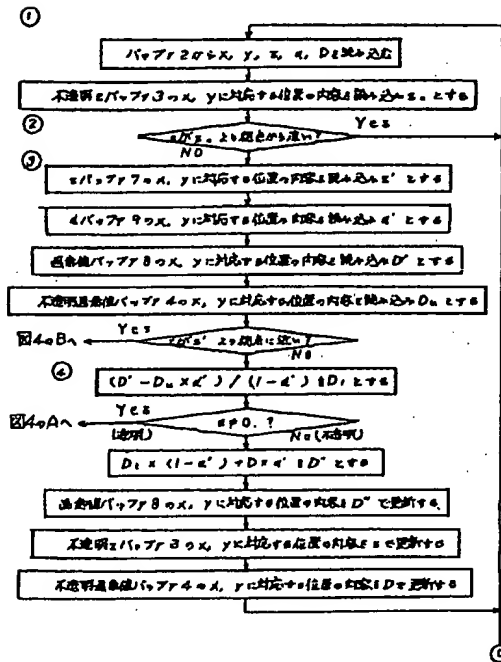 ①
バッファ2から x, y, z, α, Dを読み込む
不透明zバッファ3のx, yに対応する位置の内容を読み込みz₀とする
②
zがz₀より視点から遠い?
Yes
NO
③
zバッファ7のx, yに対応する位置の内容を読み込みz'とする
αバッファ9のx, yに対応する位置の内容を読み込みα'とする
画素値バッファ8のx, yに対応する位置の内容を読み込みD'
不透明画素値バッファ4のx, yに対応する位置の内容を読み込みDuとする
Yes
図4のBへ
zがz'より視点に近い?
No
④
(D'-Du×α')/(1-α')をDtとする
Yes
図4のAへ
(透明)
α≠0.?
No(不透明)
Dt×(1-α')+D×α'をD"とする
画素値バッファ8のx, yに対応する位置の内容をD"で更新する
不透明zバッファ3のx, yに対応する位置の内容をzで更新する
不透明画素値バッファ4のx, yに対応する位置の内容をDで更新する